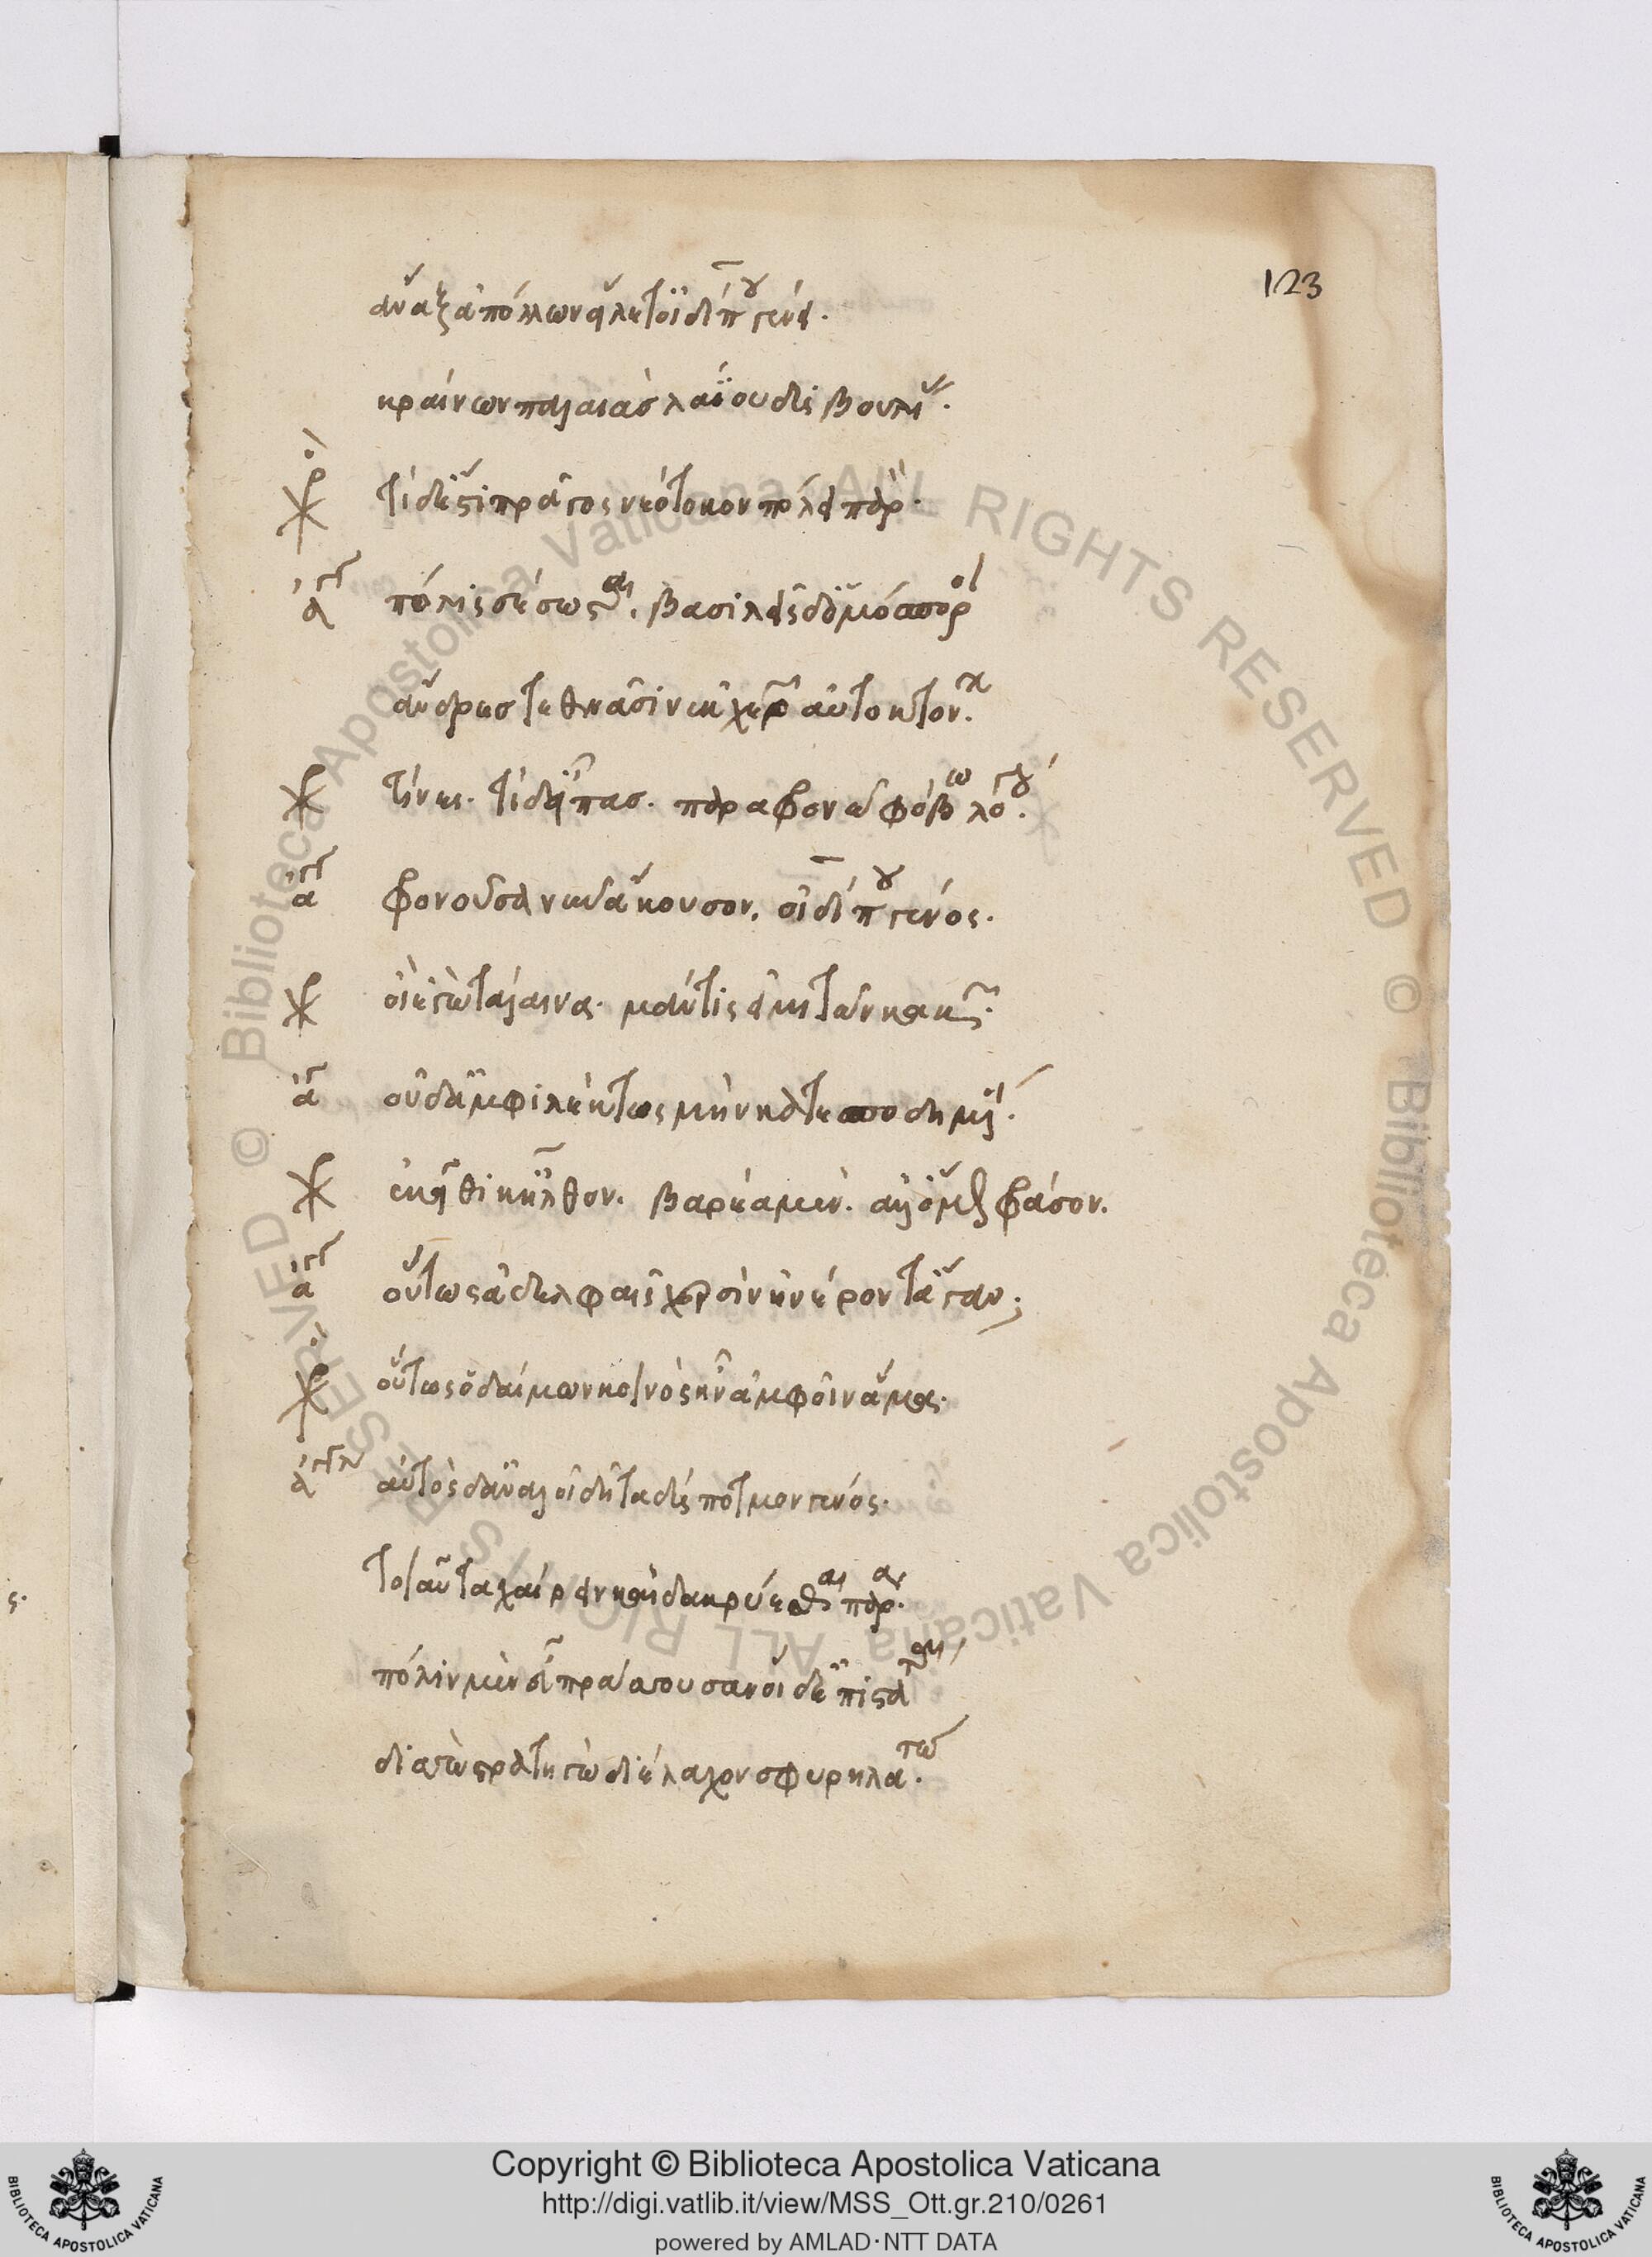 123
ἄναξ ἀπόλλων εἵλετ' οἰδίπου γένει.
κραίνων παλαιὰς λαΐου δυσβουλίας.
χορ τί δ' ἔστι πρᾶγος νεόκοτον πόλει παρόν.
ἄγγ πόλις σέσωσται. βασιλεῖς δ' ὁμόσποροι
ἄνδρες τεθνᾶσιν ἐκ χερῶν αὐτοκτόνων.
χο τίνες. τί δ' εἶπας. παραφρονῶ φόβω λόγου.
ἄγγ φρονοῦσα νῦν ἄκουσον. οἰδίπου γένος.
χο οἲ ἐγὼ τάλαινα. μάντις εἰμὶ τῶν κακῶν.
ἄγ οὐδ' ἀμφιλέκτως μὴν κατεσποδημένοι.
χο ἐκεῖθι κεῖλθον. βαρέα μέν. ἀλλ' ὅμως φράσον.
ἄγγ οὕτως ἀδελφαῖς χερσὶν ἠναίροντ' ἄγαν;
χορ οὕτως ὁ δαίμων κοινὸς ἦν ἀμφοῖν ἅμα.
ἄγγελ αὐτὸς δ' ἀναλοῖ δῆτα δύσποτμον γένος.
τοιαῦτα χαίρειν καὶ δακρύεσθαι πάρα.
πόλιν μὲν εὖ πράσσουσαν οἱ δ' ἐπιστάται
δισσὼ στρατηγὼ διέλαχον σφυρηλάτω.
Copyright © Biblioteca Apostolica Vaticana
http://digi.vatlib.it/view/MSS_Ott.gr.210/0261
powered by AMLAD·NTT DATA
BIBLIOTECA APOSTOLICA VATICANA
BIBLIOTECA APOSTOLICA VATICANA
© Biblioteca Apostolica Vaticana ALL RIGHTS RESERVED © Biblioteca Apostolica Vaticana ALL RIGHTS RESERVED